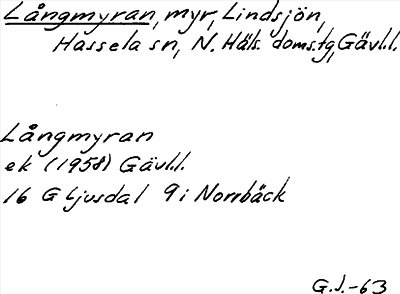 Långmyran, myr, Lindsjön,
Hassela sn, N. Häls. doms.tg, Gävl.l.
Långmyran
ek (1958) Gävl.l.
16 G Ljusdal 9 i Norrbäck
G.J.-63